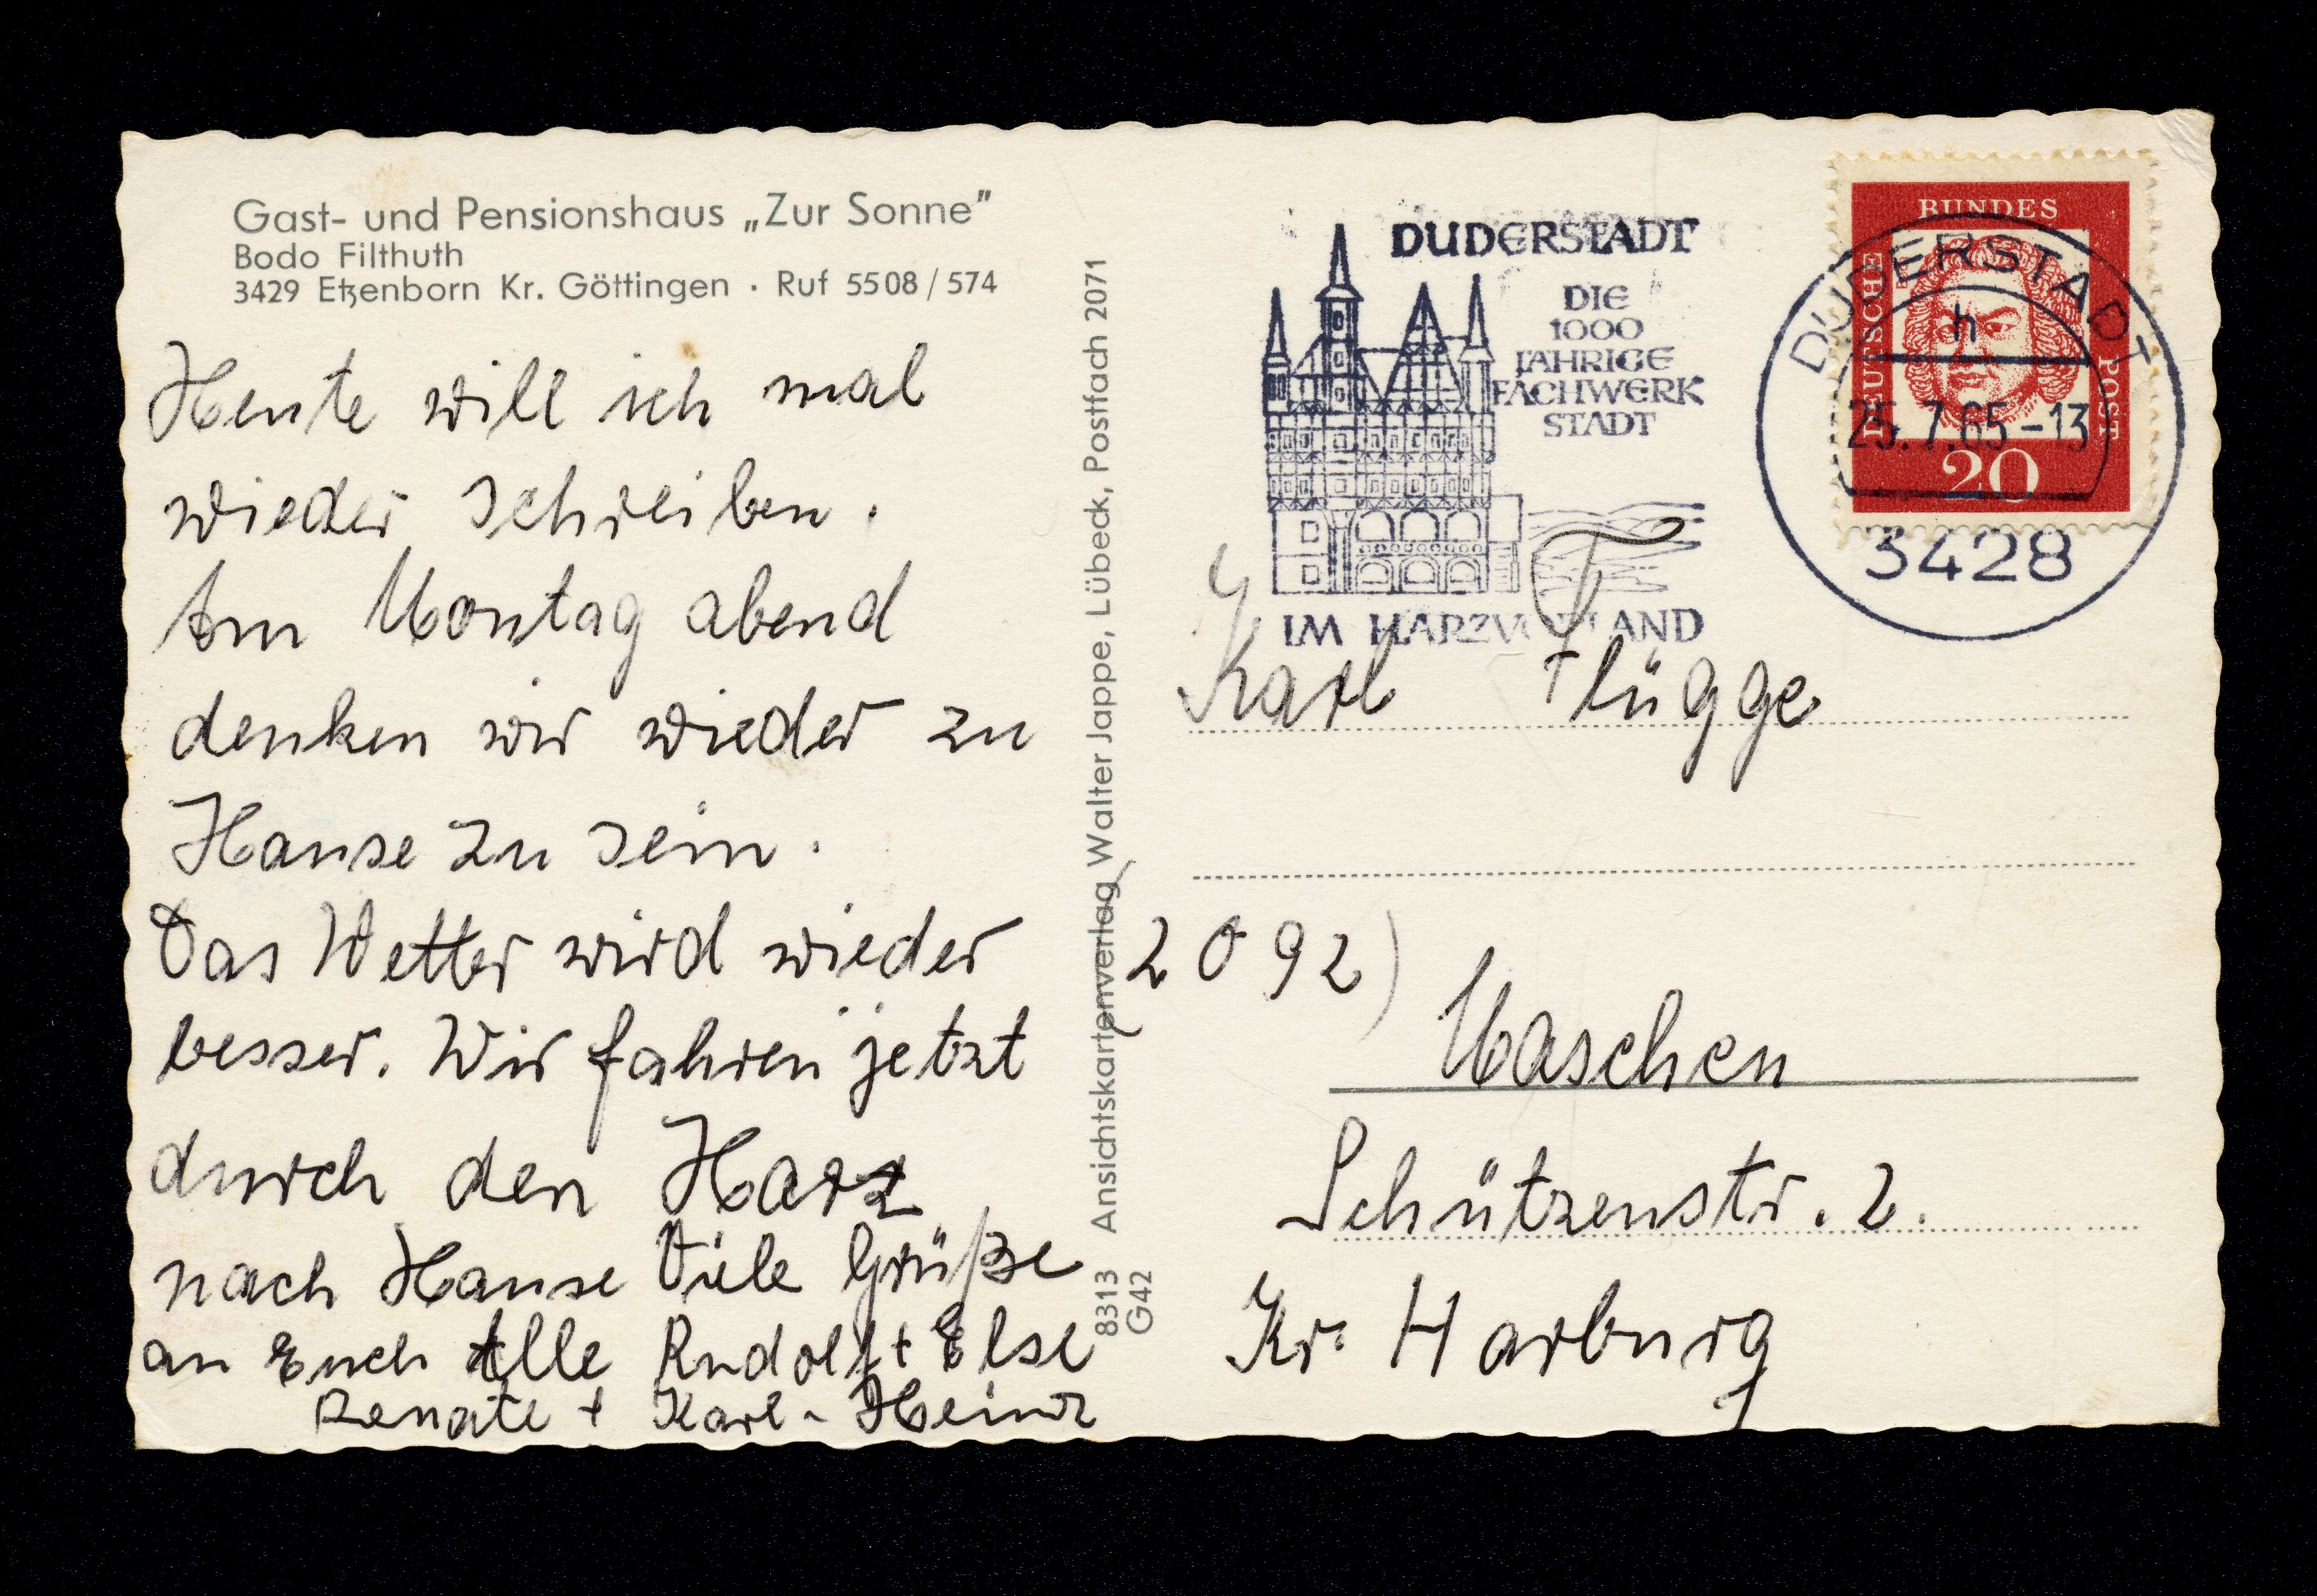 Gast- und Pensionshaus „Zur Sonne"
Bodo Filthuth
3429 Etzenborn Kr. Göttingen · Ruf 5508/574
Heute will ich mal
wieder schreiben.
Am Montag abend
denken wir wieder zu
Hause zu sein.
Das Wetter wird wieder
besser. Wir fahren jetzt
durch den Harz
nach Hause Viele Grüße
an Euch Alle Rudolf + Else
Renate + Karl-Heinz
8313 Ansichtskartenverlag Walter Jappe, Lübeck, Postfach 2071
G42
DUDERSTADT
DIE
1000
JÄHRIGE
FACHWERK
STADT
IM HARZVORLAND
DEUTSCHE
BUNDES
POST
20
DUDERSTADT
h
25.7.65-13
3428
Karl Flügge
(2092)
Maschen
Schützenstr. 2.
Kr. Harburg